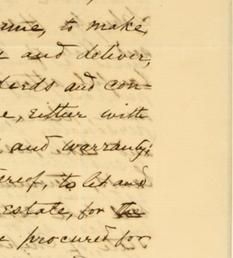 ame, to make,
and deliver,
deeds and con=
e, either with
and warranty;
ereof, to let and
estate, for the
e procured for